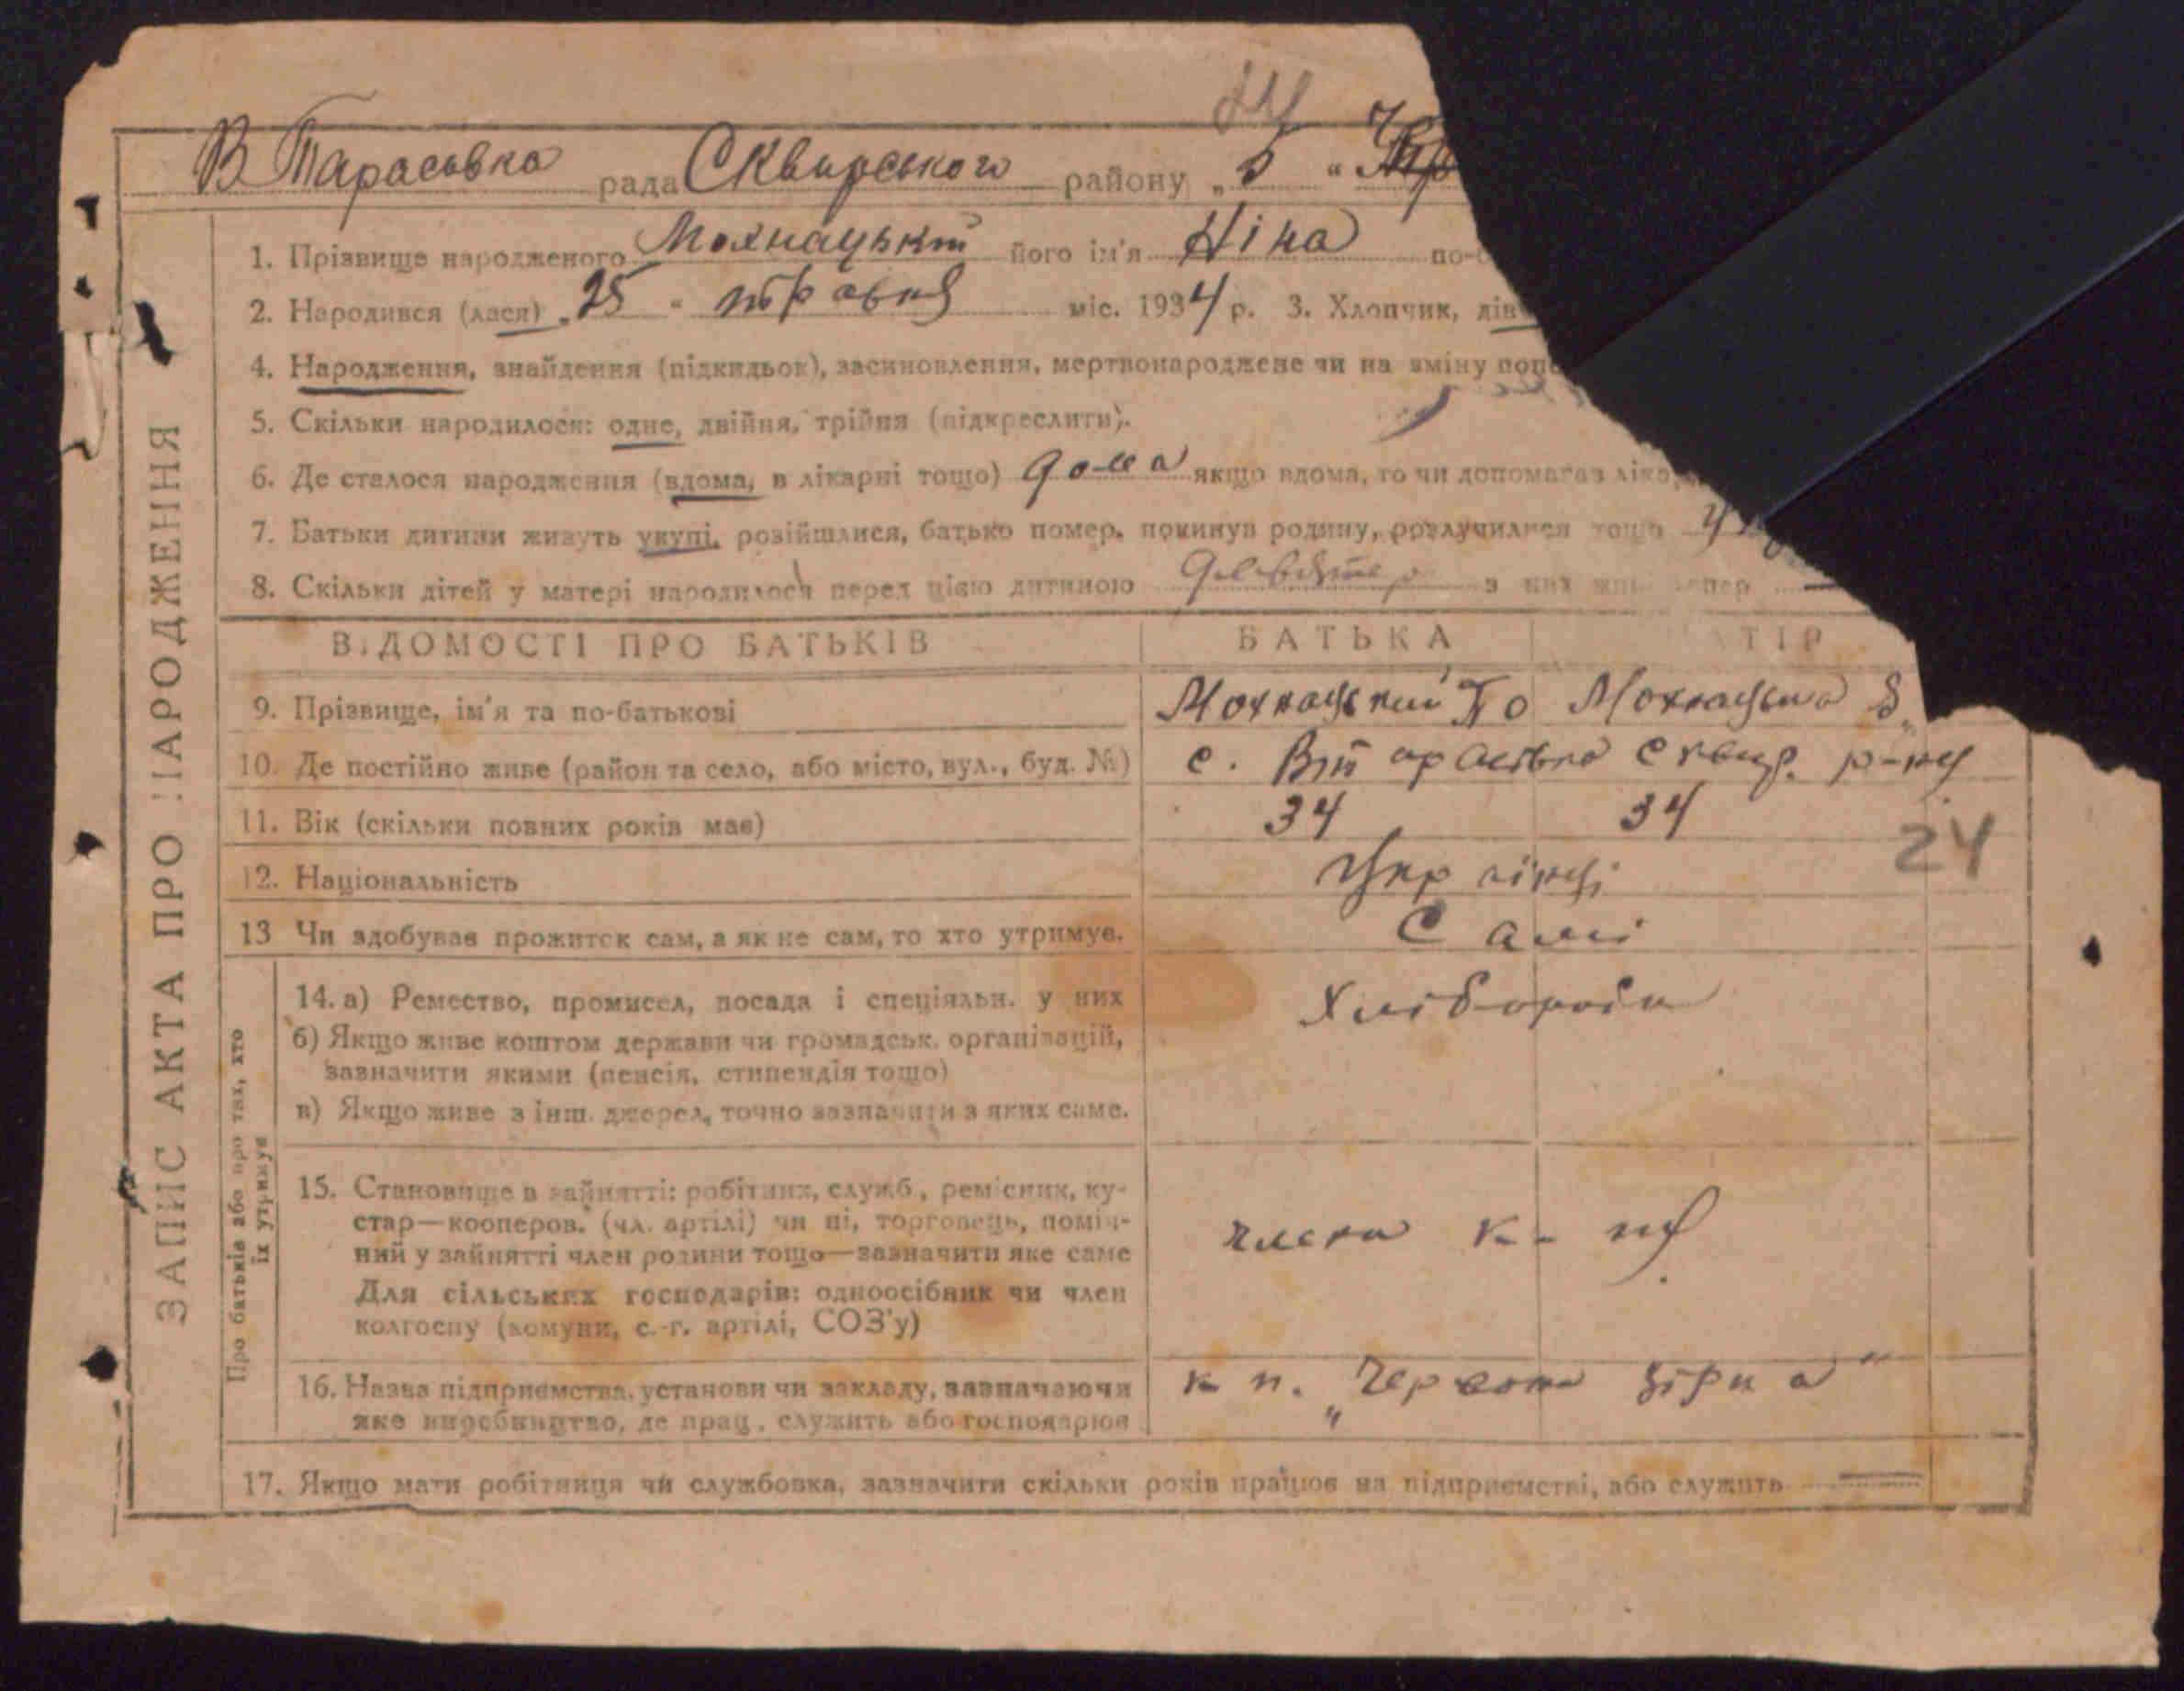 24
В Тарасовка рада Сквирського району „5“
1. Прізвище народженого Мохнацький його ім'я Ніна по-
2. Народився (лася) „25“ травня міс. 1934 р. 3. Хлопчик, дів
4. Народження, знайдення (підкидьок), засиновлення, мертвонароджене чи на зміну
5. Скільки народилося: одне, двійня, трійня (підкреслити).
6. Де сталося народження (вдома, в лікарні тощо) дома якщо вдома, то чи допомагав ліка
7. Батьки дитини живуть укупі, розійшлися, батько помер, покинув родину, розлучилися тощо
8. Скільки дітей у матері народилося перед цією дитиною з них
ВІДОМОСТІ ПРО БАТЬКІВ БАТЬКА АТІР
9. Прізвище, ім'я та по-батькові Мохнацький По Мохнацька
10. Де постійно живе (район та село, або місто, вул., буд. №) с. Втарасівка Сквир. р-ну
11. Вік (скільки повних років має) 34 34
24
12. Національність Українці
13 Чи здобуває прожиток сам, а як не сам, то хто утримує. Самі
14. а) Ремество, промисел, посада і спеціяльн. у них Хлібороби
б) Якщо живе коштом держави чи громадськ. організацій,
зазначити якими (пенсія, стипендія тощо)
в) Якщо живе з інш. джерел, точно зазначити з яких саме.
15. Становище в зайнятті: робітник, служб., ремісник, ку-
стар—кооперов. (чл. артілі) чи ні, торговець, поміч-
ний у зайнятті член родини тощо—зазначити яке саме
члени к-
Для сільських господарів: одноосібник чи член
колгоспу (комуни, с.-г. артілі, СОЗ'у)
16. Назва підприємства, установи чи закладу, зазначаючи к п. „Червона зірка“
яке виробництво, де прац., служить або господарює
17. Якщо мати робітниця чи службовка, зазначити скільки років працює на підприємстві, або служить
ЗАПИС АКТА ПРО НАРОДЖЕННЯ
Про батьків або про тих, хто
їх утримує